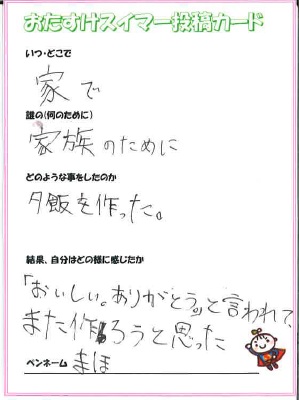 おたすけスイマー投稿カード
いつ・どこで
家で
誰の(何のために)
家族のために
どのような事をしたのか
夕飯を作った。
結果、自分はどの様に感じたか
「おいしい。ありがとう。」と言われて、
また作ろうと思った
ペンネーム まほ